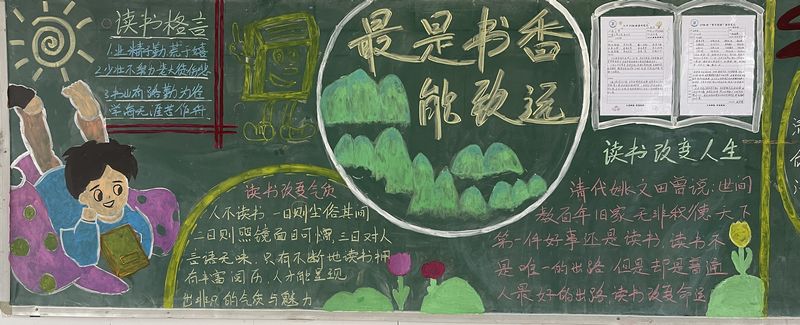 读书格言
1.业精于勤荒于嬉
2.少壮不努力老大徒伤悲
3.书山有路勤为径
学海无涯苦作舟
最是书香
能致远
读书改变气质
一人不读书 一日则尘俗其间
二日则照镜面目可憎,三日对人
言语无味,只有不断地读书拥
有丰富阅历,人才能显现
出非凡的气质与魅力
读书改变人生
清代姚文田曾说:世间
数百年旧家无非积德 天下
第一件好事还是读书,读书不
是唯一的出路 但是却是普通
人最好的出路,读书改变命运